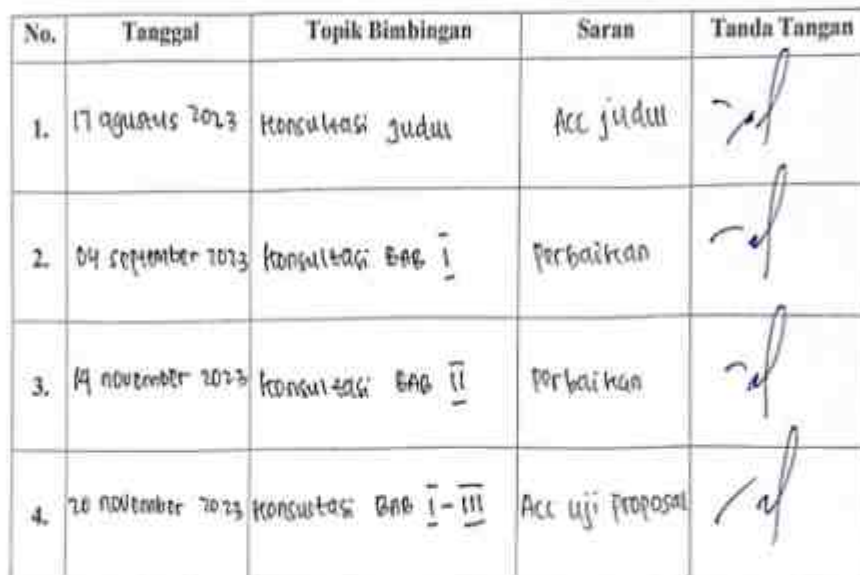 No. Tanggal Topik Bimbingan Saran Tanda Tangan
1. 17 agustus 2023 Konsultasi judul Acc judul
2. 04 september 2023 Konsultasi BAB I Perbaikan
3. 19 november 2023 Konsultasi BAB II Perbaikan
4. 20 november 2023 Konsultasi BAB I - III Acc uji proposal